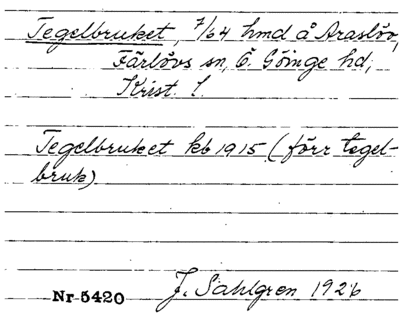 Tegelbruket, 7/64 hmd å Araslöv,
Färlövs sn, Ö. Göinge hd,
Krist. l.
Tegelbruket kb 1915 (förr tegel-
bruk)
Nr 5420 J. Sahlgren 1926